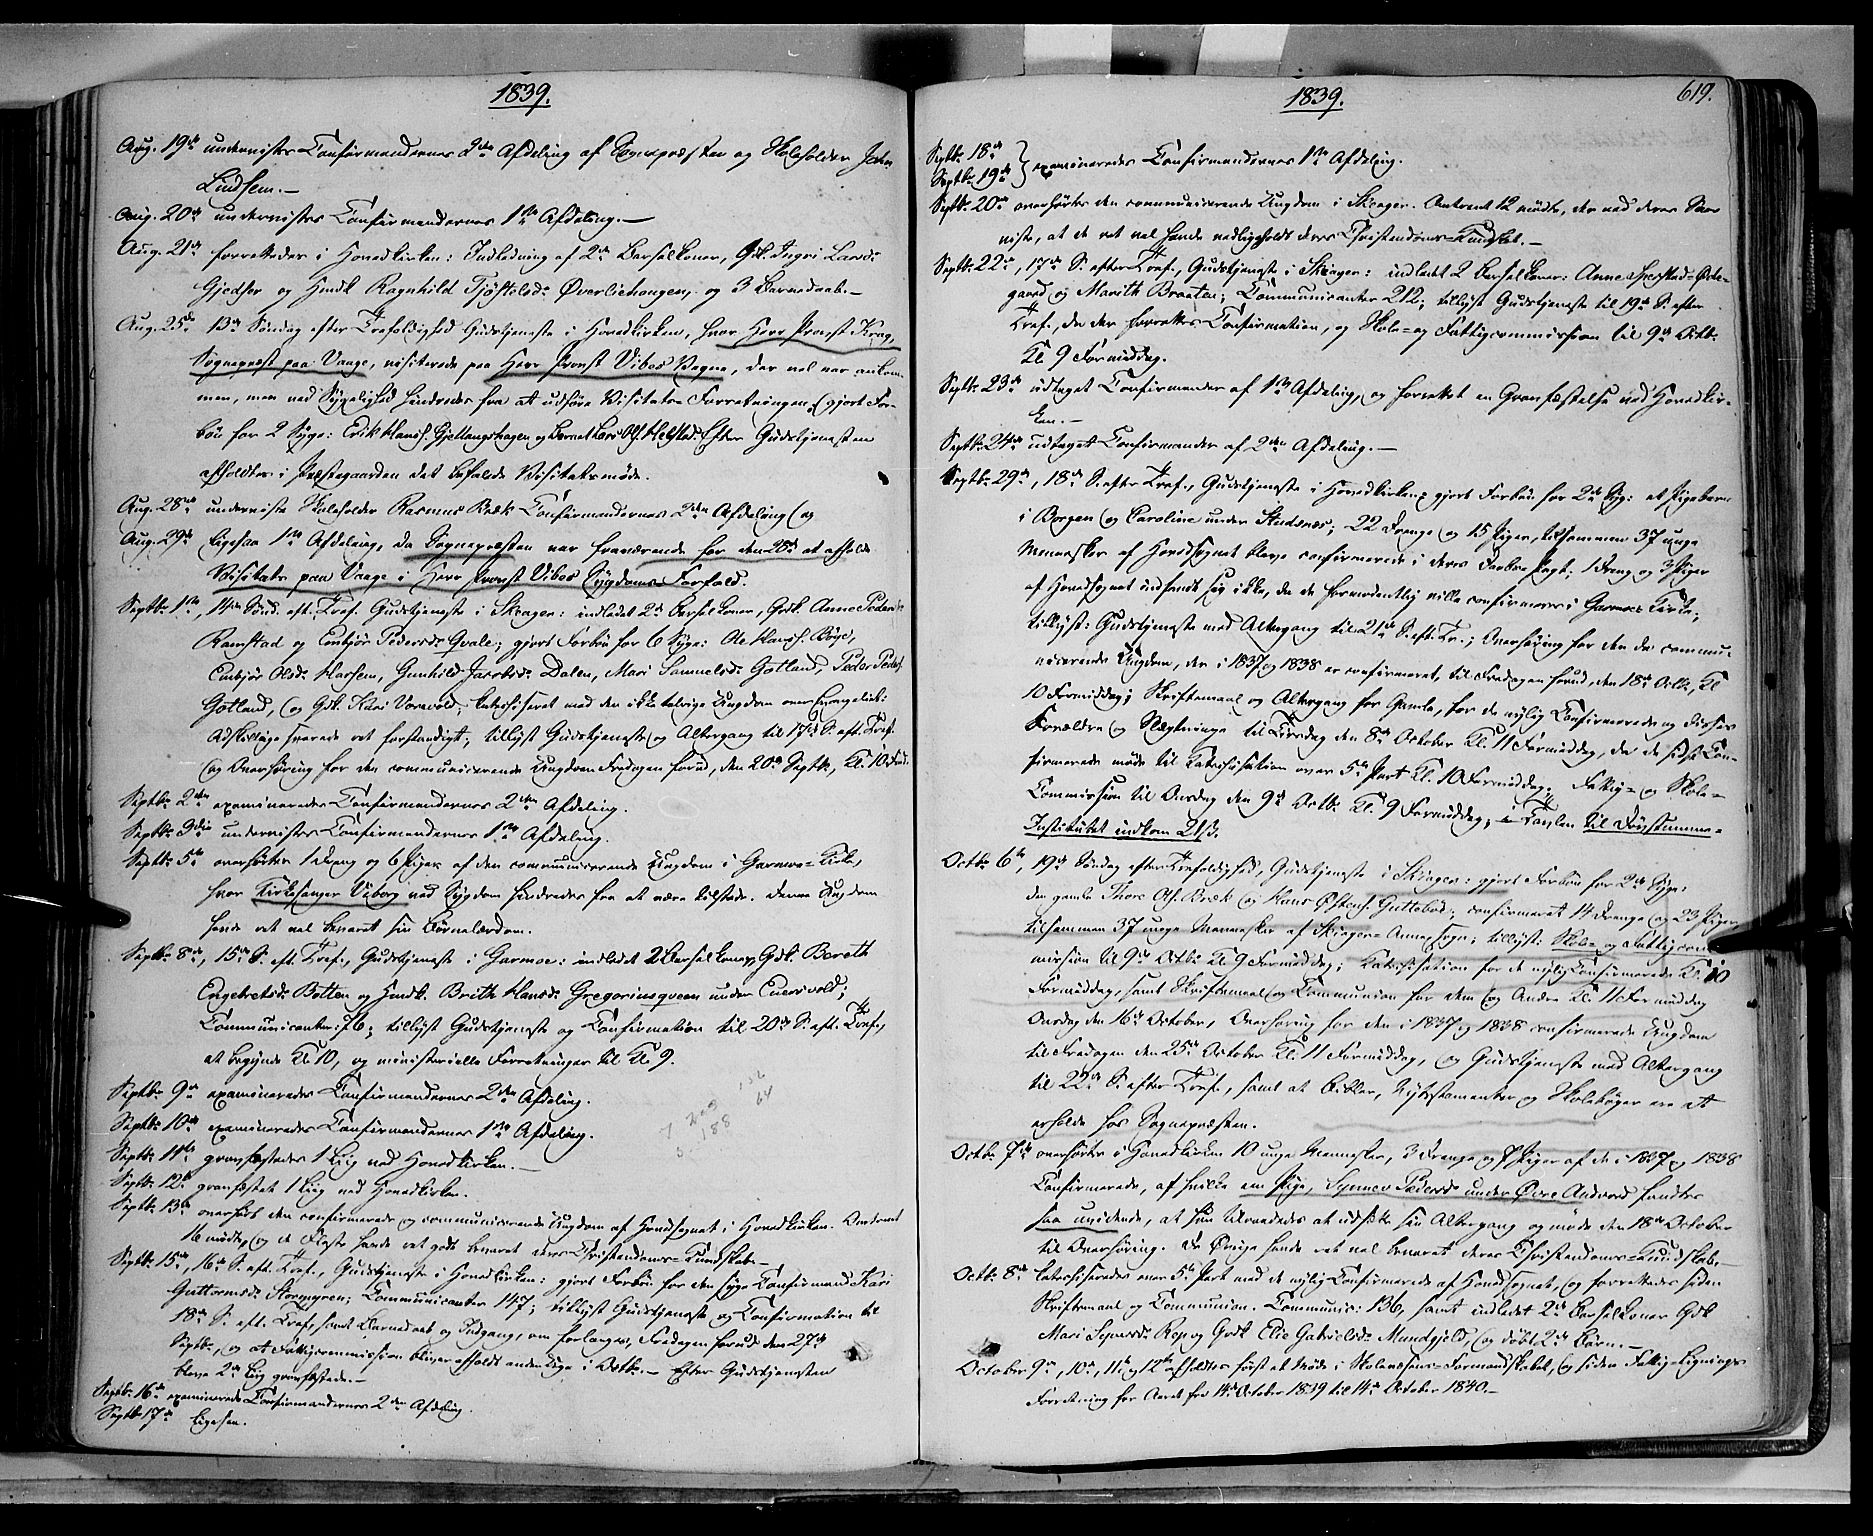 1839.
Aug. 19de underviistes Confirmandernes 2den Afdeling af Sognepræsten og Skoleholder John
Lindsem.—
Aug. 20de underviistes Confirmandernes 1ste Afdeling.—
Aug. 21de forrettedes i Hovedkirken: Indledning af 2de Barselkoner, Gdk. Ingri Larsd:
Gjedser og Hmdk Ragnhild Tjøstelsd: Øverliehaugen, og 3 Barnedaab.—
Aug. 25de 13de Søndag efter Trefoldighed Gudstjeneste i Hovedkirken, hvor Herr Provst Krag,
Sognepræst paa Vaage, visiterede paa Herr Provst Vibes Vegne, der vel var ankom-
men, men ved Sygelighed hindredes fra at udføre Visitats-Forretningen, (gjort For-
bøn for 2 Syge: Erik Hans: Gjettungshagen og Barnet Lars Ols. Helstad. Efter Gudstjenesten
afholdtes i Præstegaarden det befalede Visitatsmøde.
Aug. 28de underviiste Skoleholder Rasmus Bræk Confirmandernes 2den Afdeling (og
Aug. 29de ligesaa 1ste Afdeling, da Sognepræsten var fraværende for den 28de at afholde
Visitats paa Vaage i Herr Provst Vibes Sygdoms-Forfald.
Septb. 1ste, 14de Sønd. eft. Tref. Gudstjeneste i Skeager: indledet 2de Barselkoner, Gdk. Anne Pedersd:
Ramstad og Embjør Pedersd: Qvale; gjort Forbøn for 6 Syge: Ole Hans. Bøye,
Embjør Olsd: Harsem, Gunhild Jacobsd: Dalen, Mari Sammelsd: Gotland, Peder Peders.
Gotland, (og Gdk. Kari Vorevold; katechiseret med den ikke talrige Ungdom over Evangeliet:
Adskillige svarede ret forstandigt; tillyst Gudstjeneste og Altergang til 17de S. eft. Tref.
(og Overhøring for den communicerende Ungdom Fredagen forud, den 20de Septb., Kl. 10 Form.
Septb. 2den examineredes Confirmandernes 2den Afdeling.
Septb. 3die underviistes Confirmandernes 1ste Afdeling.
Septb. 5te overhørtes 1 Dreng og 6 Piger af den communicerende Ungdom i Garmoe-Kirke,
hvor Kirkesanger Viborg ved Sygdom hindredes fra at være tilstede. Denne Ungdom
havde ret vel bevaret sin Børnelærdom.
Septb. 8de, 15de S. eft. Tref., Gudstjeneste i Garmoe: indledet 2 Barselkoner, Gdk. Bereth
Engebretsd: Botten og Hmdk. Brith Hansd: Gregoriusqveen under Tuersvold;
Communicanter 76; tillyst Gudstjeneste og Confirmation til 20de S. eft. Tref.,
at begynde Kl. 10, og ministerielle Forretninger til Kl 9.
Septb. 9de examineredes Confirmandernes 2den Afdeling.
Septb. 10de examineredes Confirmandernes 1ste Afdeling.
Septb. 11te gravfæstedes 1 Liig ved Hovedkirken.—
Septb. 12te gravfæstet 1 Liig ved Hovedkirken.
Septb. 13de overhørt den confirmerede og communicerende Ungdom af Hovedsognet i Hovedkirken. Omtrent
16 mødte, (og de Fleste havde ret godt bevaret deres Christendoms-Kundskab.—
Septb. 15de, 16de S. eft. Tref., Gudstjeneste i Hovedkirken: gjort Forbøn for den syge Confirmand Kari
Guttormsd: Stormyren; Communicanter 147; tillyst Gudstjeneste og Confirmation til
18de S. eft. Tref. samt Barnedaab og Indgang, om forlanges, Fredagen forud den 27de
Septb., og at Fattigcommission bliver afholdt andenlige i Octb.— Efter Gudstjenesten
bleve 2de Liig gravfæstede.—
Septb. 16de examinerede Confirmandernes 2den Afdeling.
Septb. 17de ligesaa.
1839.
619.
Septb. 18de
Septb. 19de } examineredes Confirmandernes 1ste Afdeling.
Septb. 20de overhørtes den communicerende Ungdom i Skeager. Omtrent 12 mødte, der ved deres Svar
viste, at de ret vel havde vedligeholdt deres Christendoms-Kundskab.—
Septb. 22de, 17de S. efter Tref., Gudstjeneste i Skeager: indledet 2 Barselkoner: Anne Sperstad-Øde-
gaard og Marith Braaten; Communicanter 212; tillyst Gudstjeneste til 19de S. efter
Tref., da der forrettes Confirmation, og Skole- og Fattigcommission til 9de Octb.
Kl. 9 Formiddag.
Septb. 23de udtaget Confirmander af 1ste Afdeling, og forrettet en Gravfæstelse ved Hovedkir-
ken.—
Septb. 24de udtaget Confirmander af 2den Afdeling.—
Septb. 29de, 18de S. efter Tref., Gudstjeneste i Hovedkirken: gjort Forbøn for 2de Syge: et Pigebarn
i Borgen (og Caroline under Studsnæs; 22 Drenge (og 15 Piger, tilsammen 37 unge
Mennesker af Hovedsognet bleve confirmerede i deres Daabs-Pagt; 1 Dreng og 3 Piger
af Hovedsognet indfandt sig ikke, da de formodentlig ville confirmeres i Garmoes Kirke;
tillyst: Gudstjeneste med Altergang til 21de S. eft. Tr.; Overhøring for den da commu-
nicerende Ungdom, der i 1837 og 1838 er confirmeret, til Fredagen forud, den 18de Octb., Kl
10 Formiddag; Skriftemaal og Altergang for Gamle, for de nylig Confirmerede og disses
Forældre og Slægtninge til Tirsdag den 8de October Kl. 11 Formiddag, da de sidst Con-
firmerede møde til Katechisation over 5te Part Kl. 10 Formiddag. Fattig- og Skole-
Commission til Onsdag den 9de Octb. Kl. 9 Formiddag; i Tavlen til Døvstumme-
Institutet indkom 21 ß.
Octb. 6te, 19de Søndag efter Trefoldighed, Gudstjeneste i Skeager: gjort Forbøn for 2de Syge:
den gamle Thore Ols. Bræk (og Hans Østens. Guttebød; confirmeret 14 Drenge (og 23 Piger,
tilsammen 37 unge Mennesker af Skeager-Annex-Sogn; tillyst: Skole- og Fattigcom-
mission til 9de Octb. Kl 9 Formiddag; Katechisation for de nylig Confirmerede Kl 10
Formiddag, samt Skriftemaal (og Communion for dem (og Andre Kl 11 Formiddag
Onsdag den 16de October, Overhøring for den i 1837 og 1838 confirmerede Ungdom
til Fredagen den 25de October Kl. 11 Formiddag, (og Gudstjeneste med Altergang
til 22de S. efter Tref., samt at Bibler, Nytestamenter og Skolebøger ere at
erholde hos Sognepræsten.
Octb. 7de overhørtes i Hovedkirken 10 unge Mennesker, 3 Drenge og 7 Piger af de i 1837 og 1838
Confirmerede, af hvilke een Pige, Synnev Pedersd: under Øvre Andvord fandtes
saa uvidende, at hun tilraadedes at udsætte sin Altergang og møde den 18de October
til Overhøring. De Øvrige havde ret vel bevaret deres Christendoms-Kundskab.—
Octb. 8de katechiseredes over 5te Part med de nylig Confirmerede af Hovedsognet, (og forrettedes siden
Skriftemaal og Communion. Communic: 136, samt indledet 2de Barselkoner Gdk
Mari Sjursd: Rep og Gdk Elie Gabrielsd: Mundhjeld, (og døbt 2de Børn.—
October 9de, 10de, 11te og 12te afholdtes først et Møde i Skolevæsens-Formandskabet, (og siden Fattig-Lignings-
Forretning for Aaret fra 14de October 1839 til 14de October 1840.—